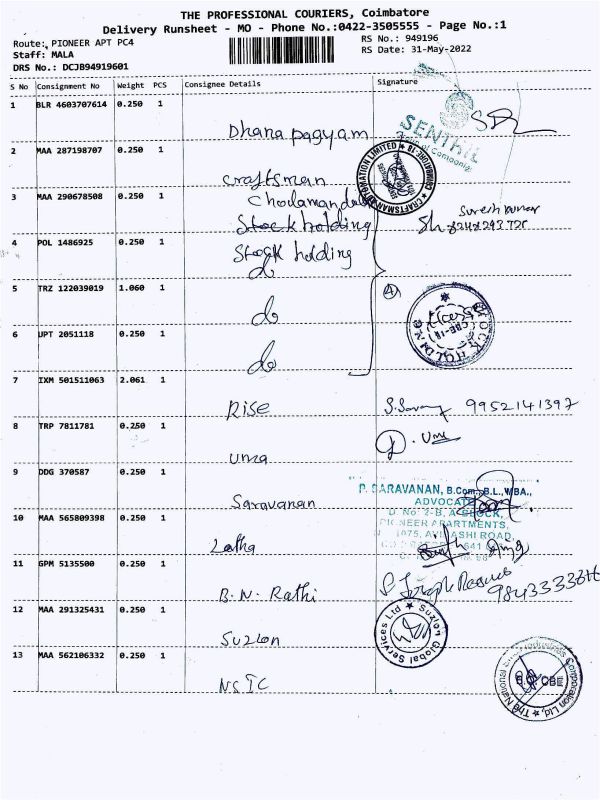 THE PROFESSIONAL COURIERS, Coimbatore
Delivery Runsheet - MO - Phone No.:0422-3505555 - Page No.:1
Route: PIONEER APT PC4
RS No.: 949196
Staff: MALA
RS Date: 31-May-2022
DRS No.: DCJB94919601
S No Consignment No Weight PCS Consignee Details Signature
1 BLR 4603707614 0.250 1
Dhanapagyam
SENTHIL
2 MAA 287198707 0.250 1
craftsman
CRAFTSMAN AUTOMATION LIMITED ★ COIMBATORE-18
3 MAA 290678508 0.250 1
Cholamandal
Stock holding
Suresh Kumar
4 POL 1486925 0.250 1
Stock holding
do
5 TRZ 122039019 1.060 1
do
4
STOCK HOLDING
CBE-18
6 UPT 2051118 0.250 1
do
7 IXM 501511063 2.061 1
Rise
9952141397
8 TRP 7811781 0.250 1
Uma
Uma
9 DDG 370587 0.250 1
Saravanan
P. SARAVANAN, B.Com., B.L., MBA.,
ADVOCATE
D. No: 2-B, A-BLOCK,
PIONEER APARTMENTS,
1075, AVINASHI ROAD,
10 MAA 565809398 0.250 1
Latha
11 GPM 5135500 0.250 1
B.N. Rathi
12 MAA 291325431 0.250 1
Suzlon
Suzlon Global Services Ltd ★
13 MAA 562106332 0.250 1
NSIC
The National Small Industries Corporation Ltd. ★
B.O CBE